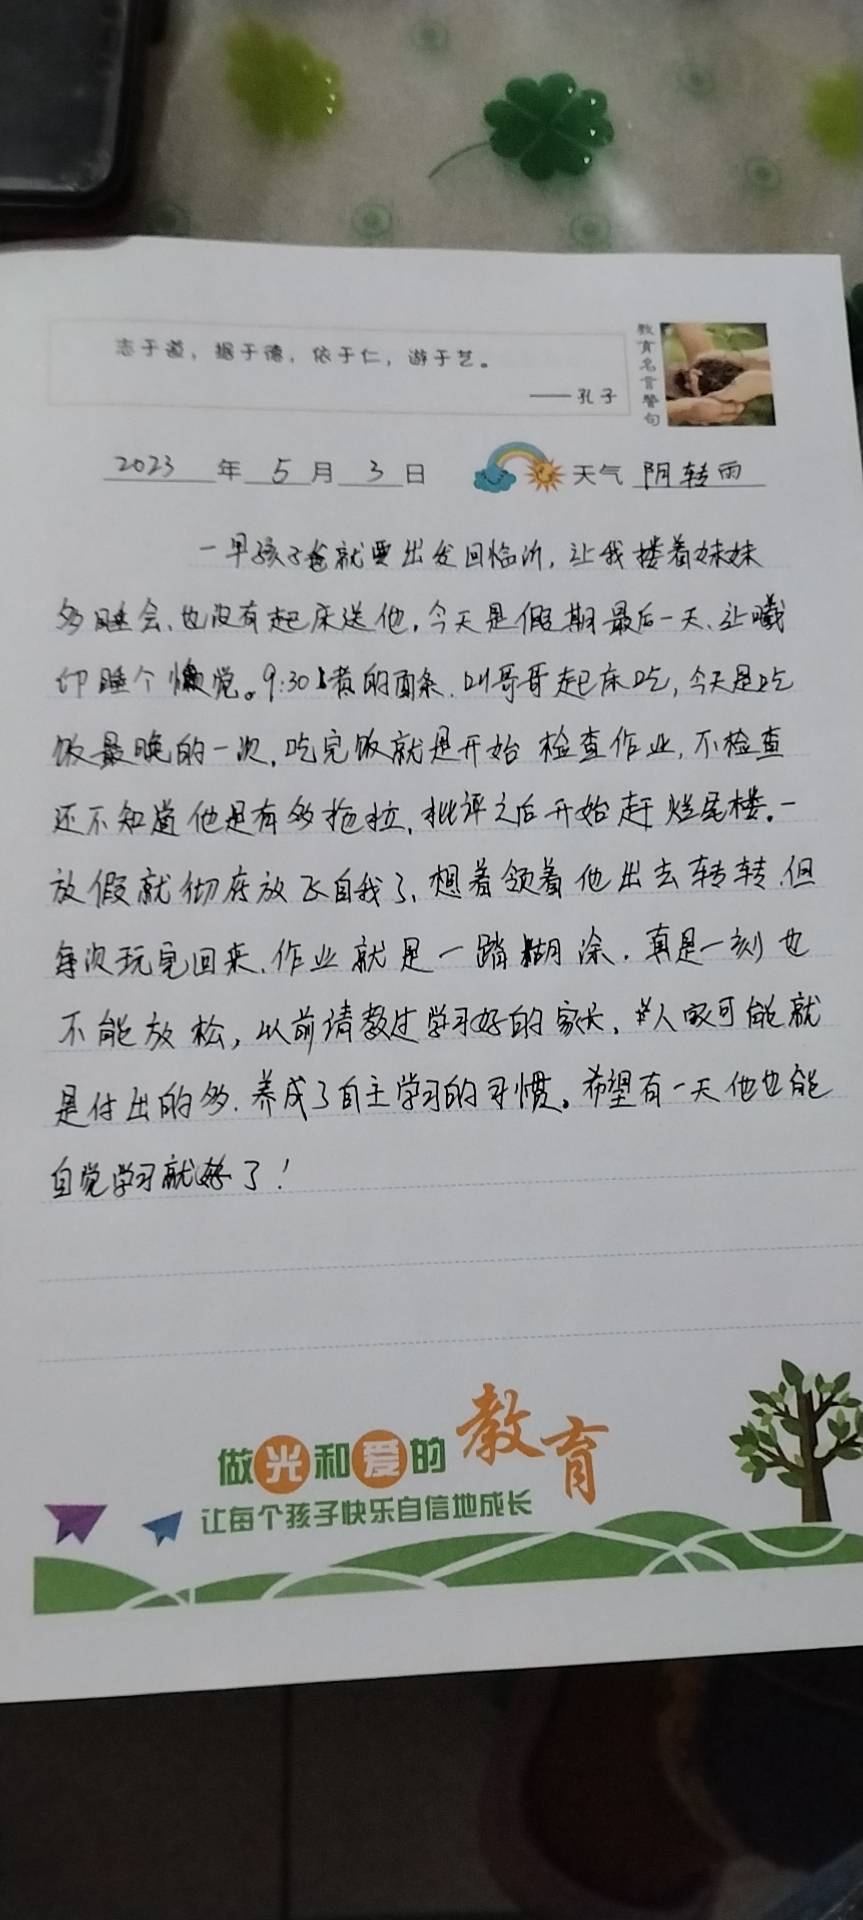 志于道，据于德，依于仁，游于艺。
——孔子
教育名言警句
2023年5月3日 天气 阴转雨
一早孩子爸就要出发回临沂，让我搂着妹妹
多睡会、也没有起床送他，今天是假期最后一天、让曦
印睡个懒觉。9:30煮的面条，叫哥哥起床吃，今天是吃
饭最晚的一次，吃完饭就是开始检查作业，不检查
还不知道他是有多拖拉，批评之后开始赶烂尾楼。一
放假就彻底放飞自我了、想着领着他出去转转、但
每次玩完回来、作业就是一踏糊涂，真是一刻也
不能放松，以前请教过学习好的家长，人家可能就
是付出的多、养成了自主学习的习惯。希望有一天他也能
自觉学习就好了！
做光和爱的教育
让每个孩子快乐自信地成长